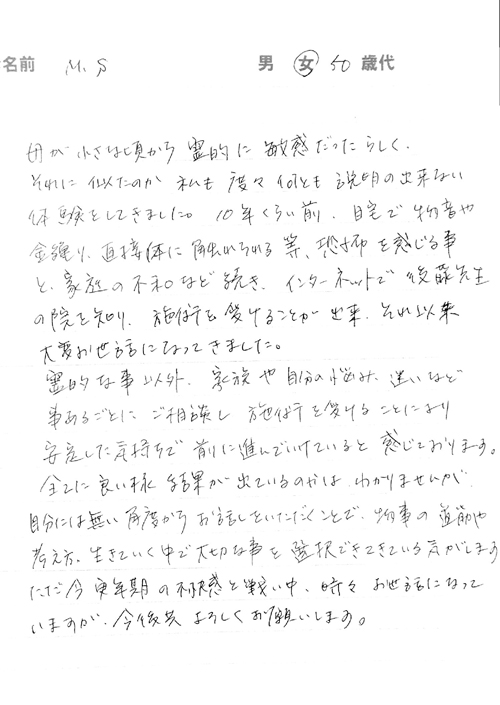 名前 M.S 男 女 50 歳代
母が小さな頃から霊的に敏感だったらしく、
それに似たのか私も度々何とも説明の出来ない
体験をしてきました。10年くらい前、自宅で物音や
金縛り、直接体に触れられる等、恐怖を感じる事
と、家庭の不和など続き、インターネットで後藤先生
の院を知り、施術を受けることが出来、それ以来
大変お世話になってきました。
霊的な事以外、家族や自分の悩み、迷いなど
事あるごとにご相談し施術を受けることにより
安定した気持ちで前に進んでいけていると感じております。
全てに良い様、結果が出ているのかは、わかりませんが
自分には無い角度からお話しをいただくことで、物事の道筋や
考え方、生きていく中で大切な事を選択できてきている気がします
ただ今更年期の不快感と戦い中、時々お世話になって
いますが、今後共よろしくお願いします。